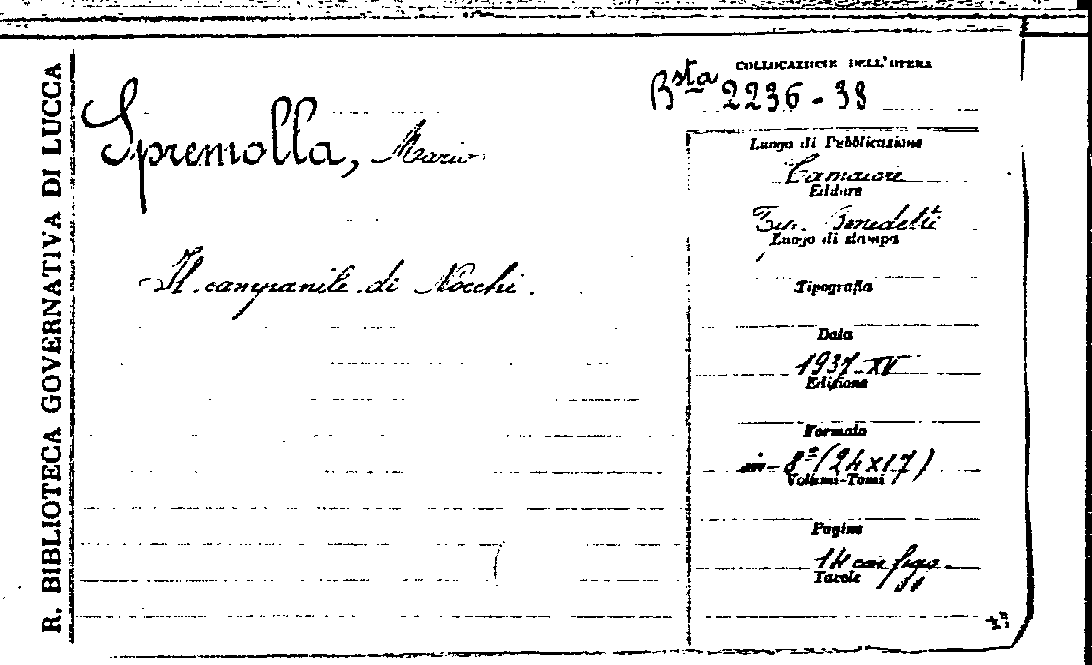 R. BIBLIOTECA GOVERNATIVA DI LUCCA
Spremolla, Mario
Il campanile di Nocchi.
COLLOCAZIONE DELL'OPERA
Bsta 2236-38
Luogo di Pubblicazione
Camaiore
Editore
Benedetti
Luogo di stampa
Tipografia
Data
1937-XV
Edizione
Formato
in-8° (24x17)
Volumi-Tomi
Pagine
14 con figg.
Tavole